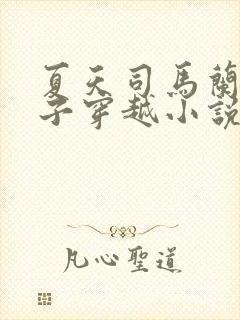 夏天司馬蘭
子穿越小說
凡心聖道